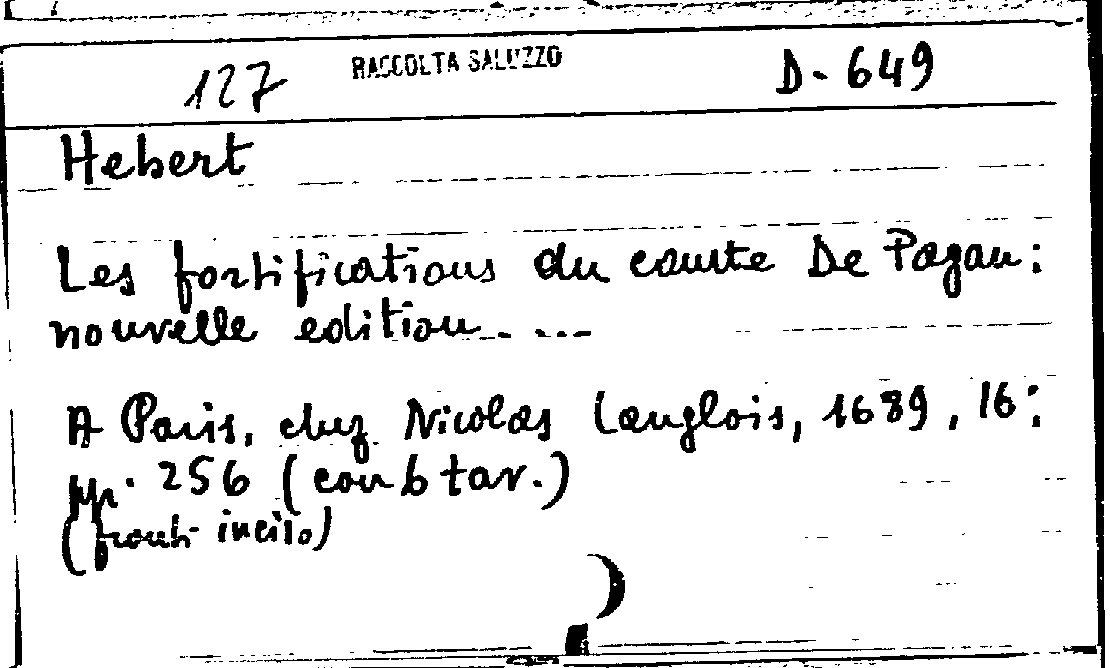 127 RACCOLTA SALUZZO D-649
Hebert
Les fortifications du comte De Pagan:
nouvelle edition.....
A Paris, chez Nicolas Langlois, 1689, 16°:
pp. 256 (con 6 tav.)
(front. inciso)